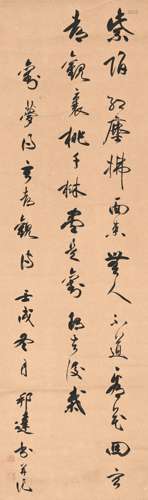 紫陌紅塵拂面來無人不道看花回玄
都觀裏桃千樹盡是劉郎去後栽
劉夢得玄都觀詩 壬戌冬月 邢 書